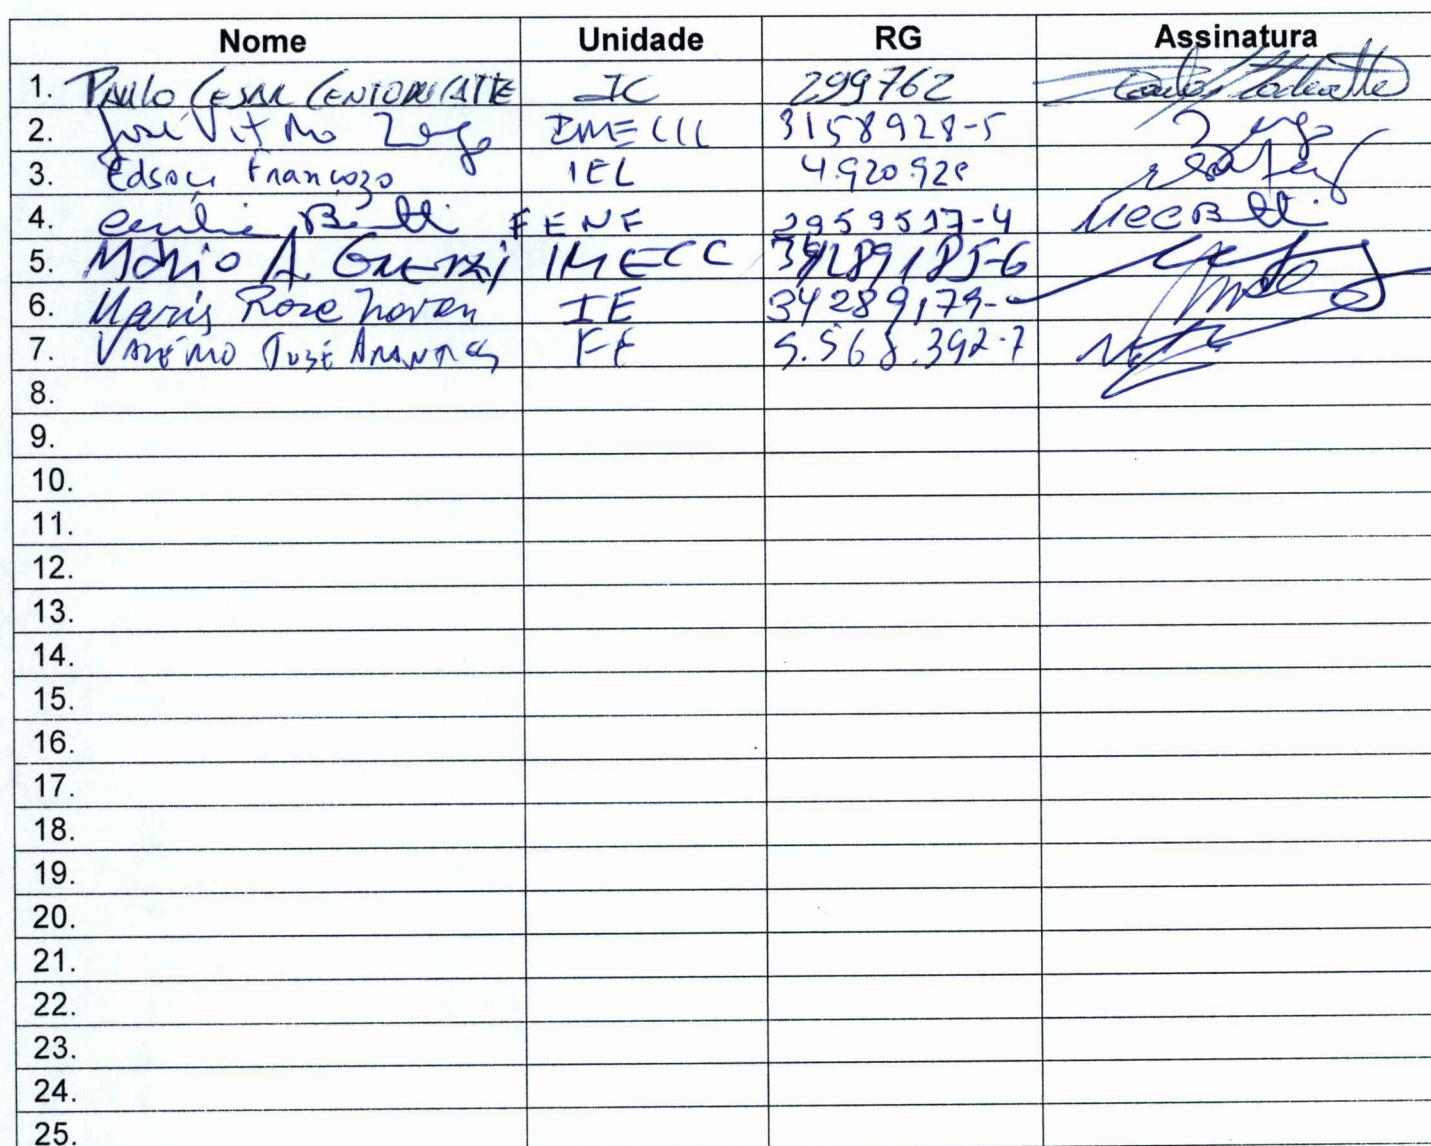 Nome Unidade RG Assinatura
1. PAULO CESAR CENTODUCATTE IC 299762
2. José Vitório Zago IMECC 3158928-5 Zago
3. Edson Françozo IEL 4.920.92
4. Cecilia FENF 3959537-4
5. Mário A. Gneri IMECC 34289185-6
6. Maria Rosa IE 34289179-
7. VALÉRIO JOSÉ ARANTES FE 5.568.392-7
8.
9.
10.
11.
12.
13.
14.
15.
16.
17.
18.
19.
20.
21.
22.
23.
24.
25.